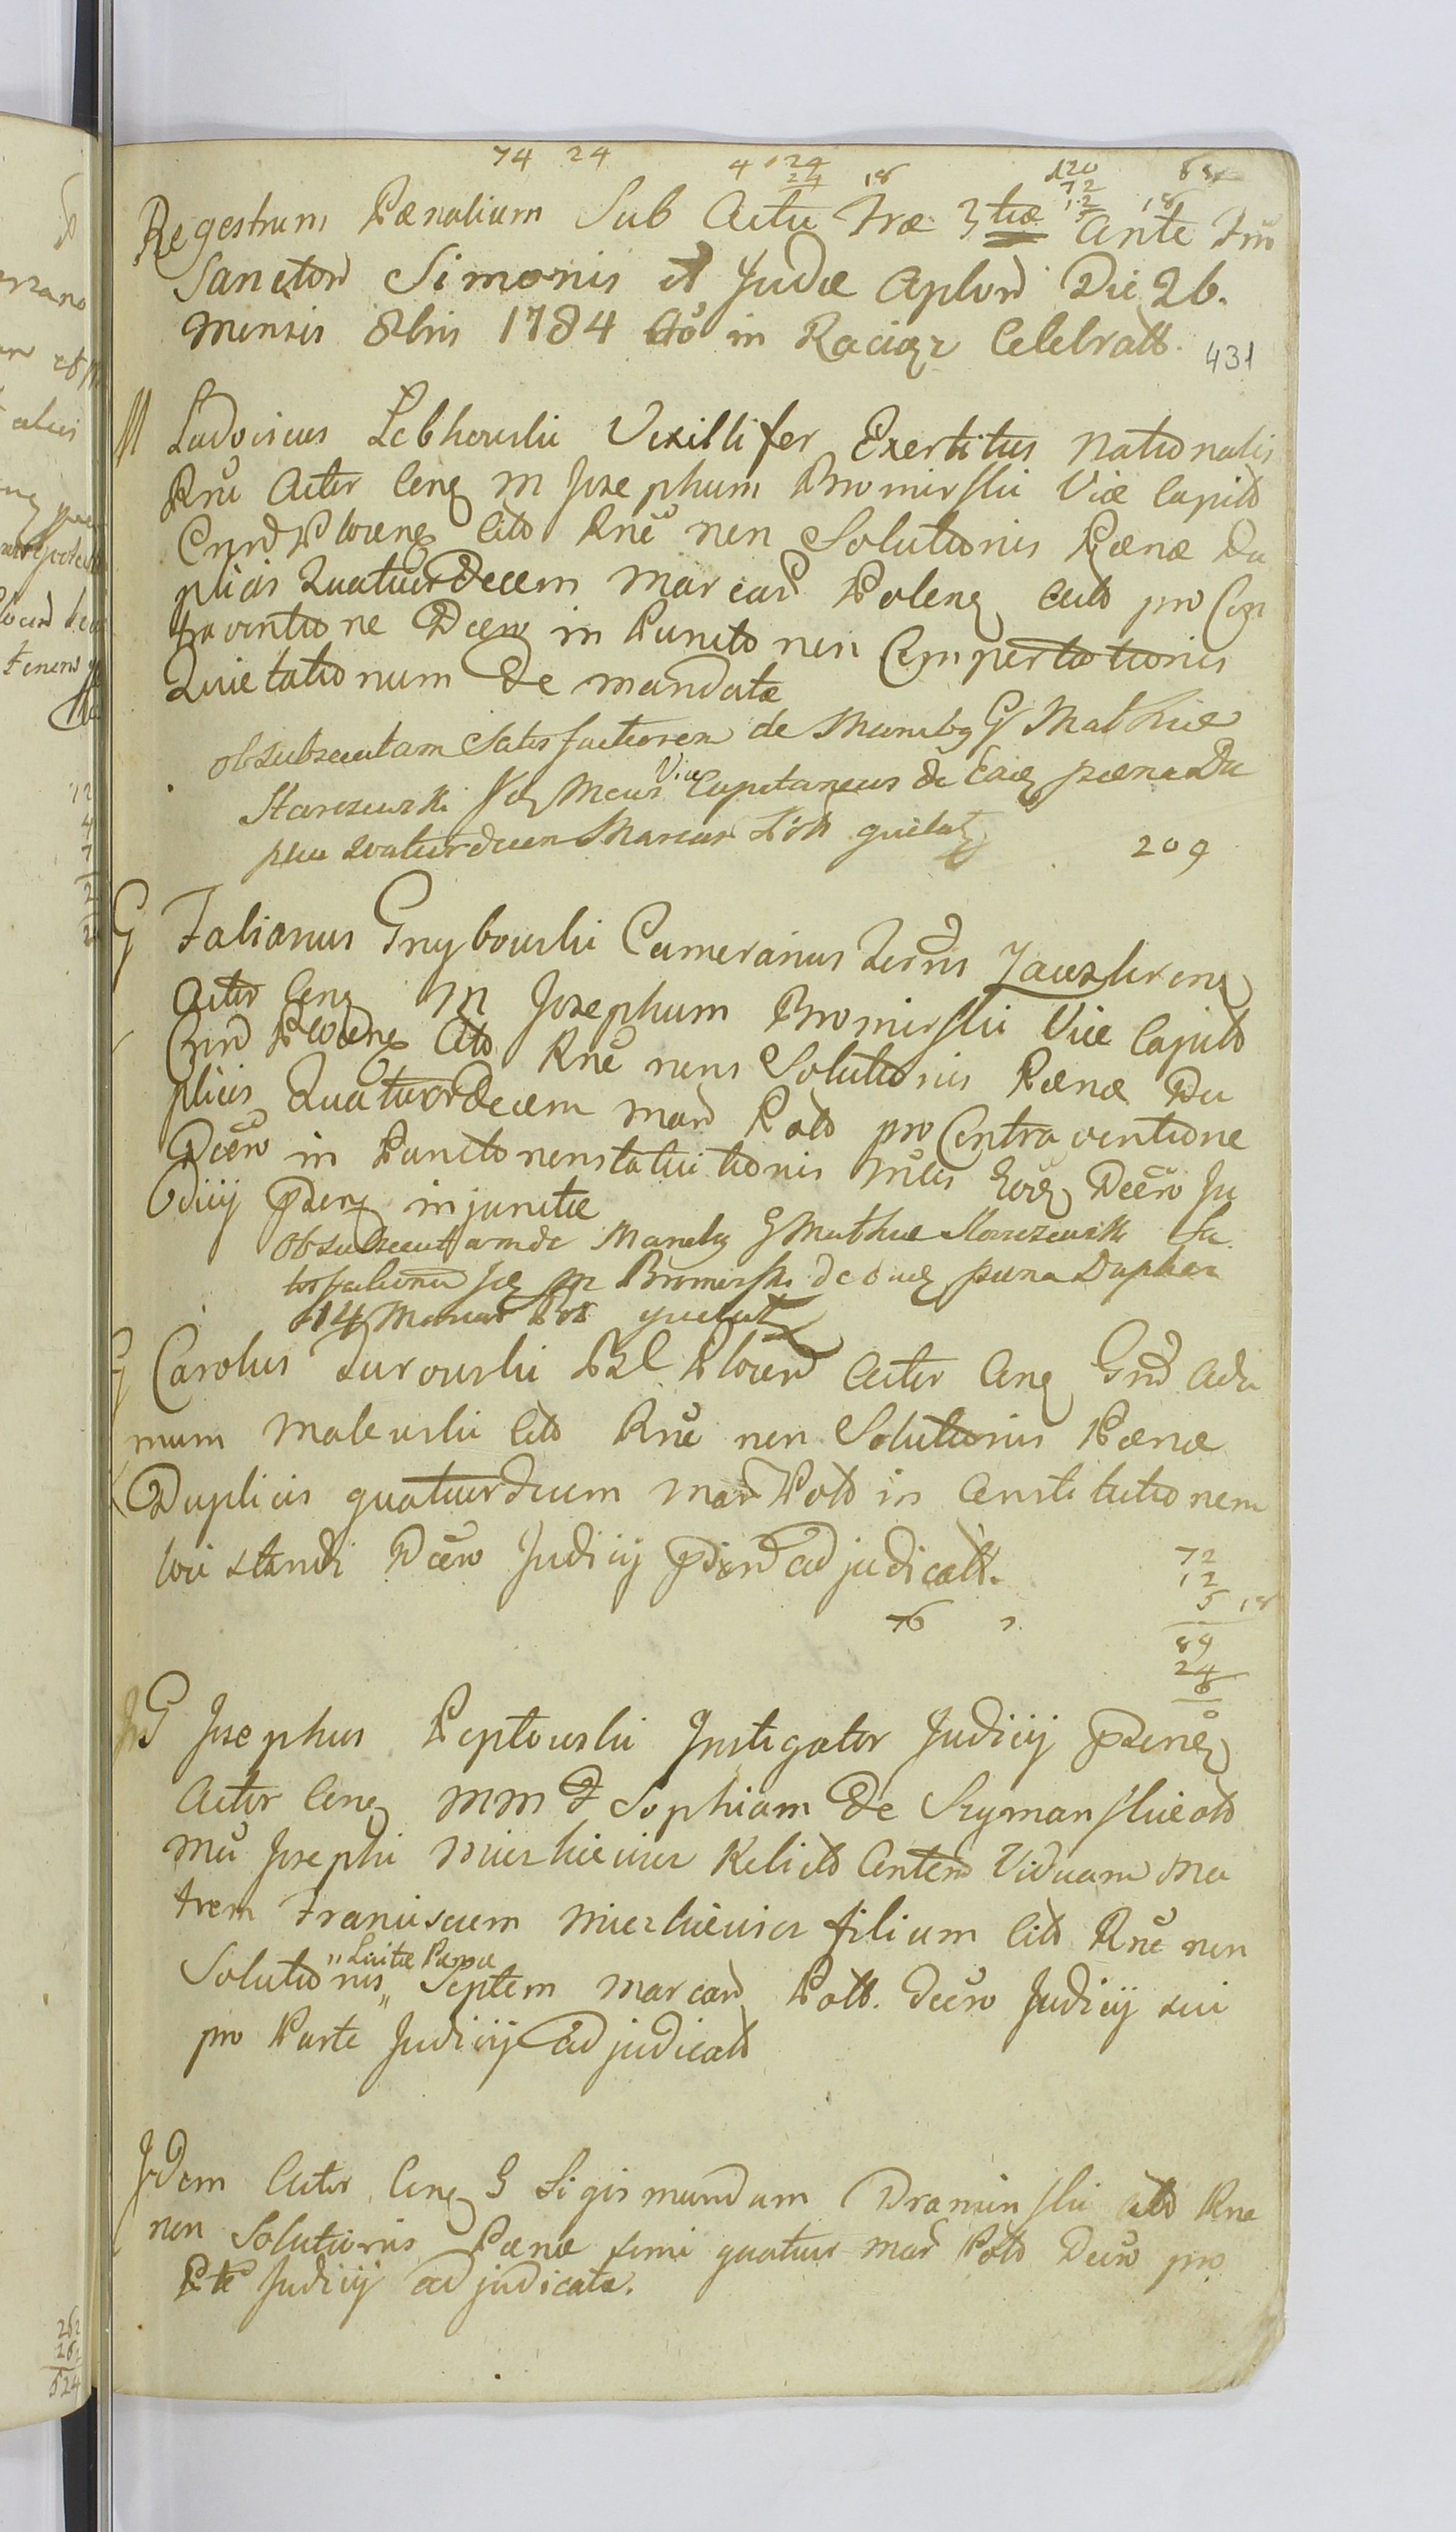 74 24 4 24 18 120 88
24 72
12 18
Regestrum Pænalium Sub Actu Fræ 3tiæ Ante Fm
Sanctor Simonis et Judæ Aplor Die 26.
Mensis 8bris 1784 Ao in Raciąz Celebratt.
431
M Ludovicus Lebkowski Vexillifer Exercitus Nationalis
Rni Actor Cenq M Josephum Bromirski Vice Capitt
Crnd Plocenq Citt Rne non Solutionis Pænæ Du
plicis Quatuordecem Marcar Polenq actt pro Con
traventione Decro in Puncto non Comportationis
Quietationum de mandatæ
ob subsecutam Satisfactionem de Manibq G Mathiæ
Starczewski Idq Mcus Vice Capitaneus de Eadq pæna Du
plici quatuordecem Marcar Polt quietat
209
G Fabianus Grzybowski Camerarius Terris Zawskrenq
Actor Cenq M Josephum Bromirski Vice Capitt
Crnd Plocenq Citt Rne nonS olutionis Pænæ Du
plicis Quatuordecem Mar Polt pro Contraventione
Decro in Puncto nonstatuitionis Mtis Eodq Decro Ju
diij Psenq injunctæ
ob subsecutam de Manibq G Mathiæ Starczewski Sa
tisfactionem Idq M Bromirski de eadq pæna Duplici
14 Marcar Pol quietat
G Carolus Zurowski BSC Plocen Actor Cenq Gnd Ada
mum Malewski Citt Rne non Solutionis Pænæ
Duplicis quatuordecem Mar Polt in Constitutionem
loci standi Decro Judicij Psend adjudicatt.
72
12
5 18
76
89
24
6
0
JG Josephus Peptowski Instigator Judicij Psenq
Actor Cenq MM D Sophiam de Szymanskie ott
Mci Josephi Mierkiewicz Relictt Consten Viduam Ma
trem Franciscum Mierkiewicz filium Citt Rne non
Solutionis "Luitæ Pænæ" Septem Marcar Poltt. Decro Judicij sui
pro Parte Judicij adjudicatt
Idem Actor Cenq G Sigismundum Draminski Citt Rne
non Solutionis Pænæ semi quatuor Mar Polt Decro pro
Pte Judicij adjudicatæ.